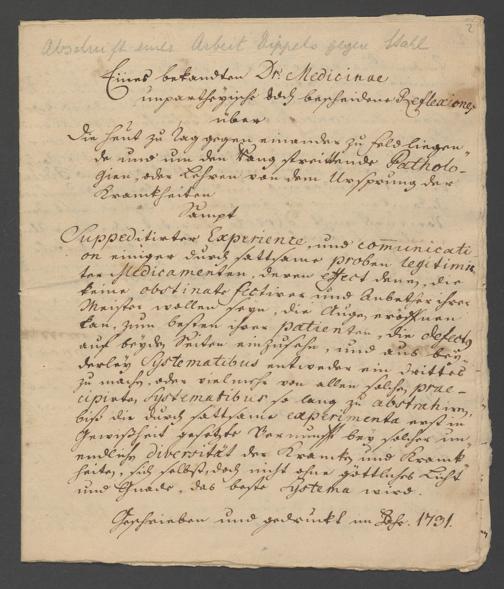 2
Abschrift einer Arbeit Dippels gegen Stahl
Eines bekandten Dr. Medicinae
unpartheyische doch bescheidene Reflexiones
über
Die heut zu Tag gegen einander zu Feld liegen-
de und um den Rang streittende Patholo-
gien, oder Lehren von dem Ursprung der
Kranckheiten
Sampt
Suppeditirter Experientz, und communicati
on einiger durch sattsame proben legitimir
ter Medicamenten, deren effect denen, die
keine obstinate Sectirer und Anbether ihrer
Meister wollen seyn, die Augen eröffnen
kan, zum besten ihrer patienten, die defecte
auf beyden Seiten einzusehen, und aus bey-
derley Systematibus entweder ein drittes
zu machen, oder vielmehr von allen solchen prae-
cipirten Systematibus so lang zu abstrahiren,
biß die durch sattsame experimenta erst in
Gewißheit gesetzte Vernunfft bey solcher un-
endlichen diversität der Krancken und Kranck
heiten, sich selbst, doch nicht ohne göttliches Licht
und Gnade, das beste Systema wird.
Geschrieben und gedruckt im Jahr. 1731.